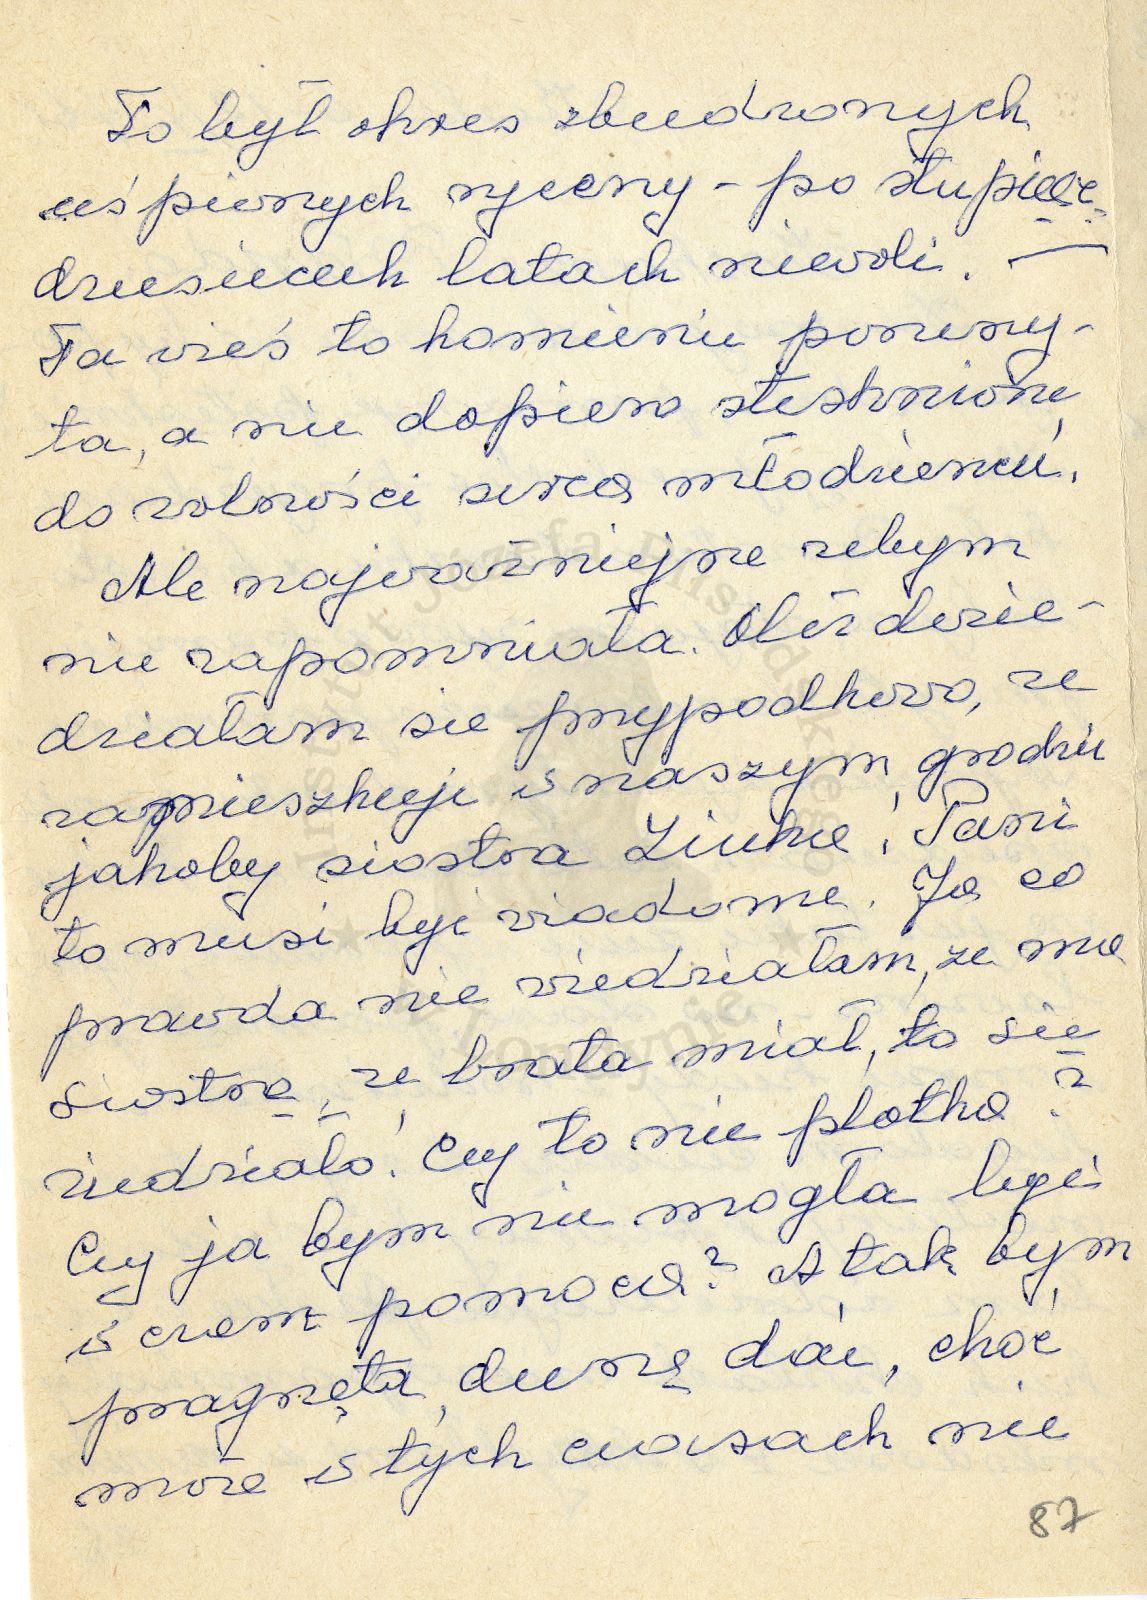 To był okres zbudzonych
uśpionych rycerzy - po stupięć-
dziesięciech latach niewoli. —
Ta wieś to kamienie poruszy-
ła, a nie dopiero stęsknione
do wolności serca młodzieńcó.
Ale najważniejsze żebym
nie zapomniała. Otóż dowie-
działam sie przypadkowo, że
zamieszkuje w naszym grodzie
jakoby siostra Ziuka! Pani
to musi być wiadome. Ja co
prawda nie wiedziałam, że ma
siostrę, że brata miał, to się
wiedziało. Czy to nie plotka?
Czy ja bym nie mogła być
w czem pomocą? A tak bym
pragnęła duszę dać, choć
może w tych czasach nie
87
Instytut Józefa Piłsudskiego
w Londynie